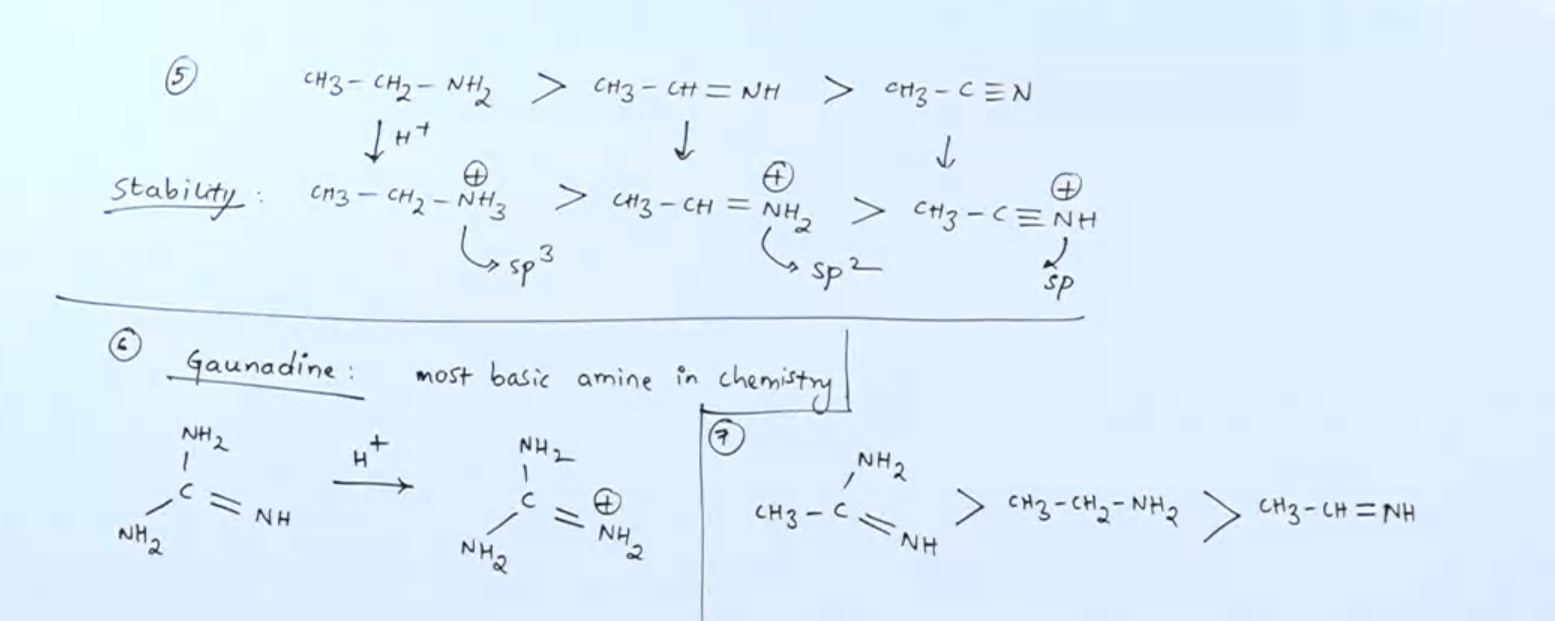 ⑤ CH3 - CH2 - NH2 > CH3 - CH = NH > CH3 - C ≡ N
↓ H+ ↓ ↓
Stability : CH3 - CH2 - NH3⊕ > CH3 - CH = NH2⊕ > CH3 - C ≡ NH⊕
sp3 sp2 sp
⑥ Gaunadine : most basic amine in chemistry
NH2
C = NH
NH2
H+ →
NH2
C = NH2⊕
NH2
⑦
NH2
CH3 - C = NH > CH3 - CH2 - NH2 > CH3 - CH = NH